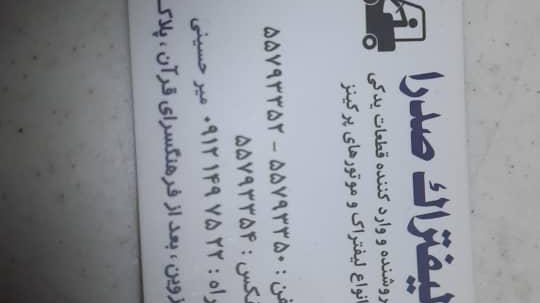 لیفتراک صدرا
فروشنده و وارد کننده قطعات یدکی
انواع لیفتراک و موتورهای پرکینز
تلفن : ۵۵۷۹۳۳۵۰ - ۵۵۷۹۳۳۵۲
فکس : ۵۵۷۹۳۳۵۴
همراه : ۰۹۱۲۱۴۹۷۵۲۲ میر حسینی
بعد از فرهنگسرای قرآن ، پلاک